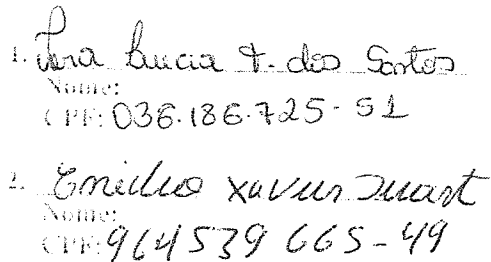 1. Iara Lucia F. dos Santos
Nome:
CPF: 036.186.725-51
2. Emidio Xavier Duart
Nome:
CPF: 964539665-49